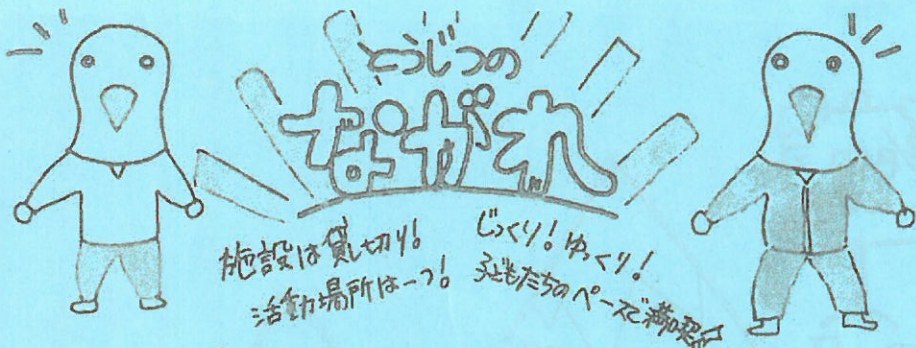 とうじつの
ながれ
施設は貸し切り!
活動場所は一つ!
じっくり!ゆっくり!
子どもたちのペースで満喫